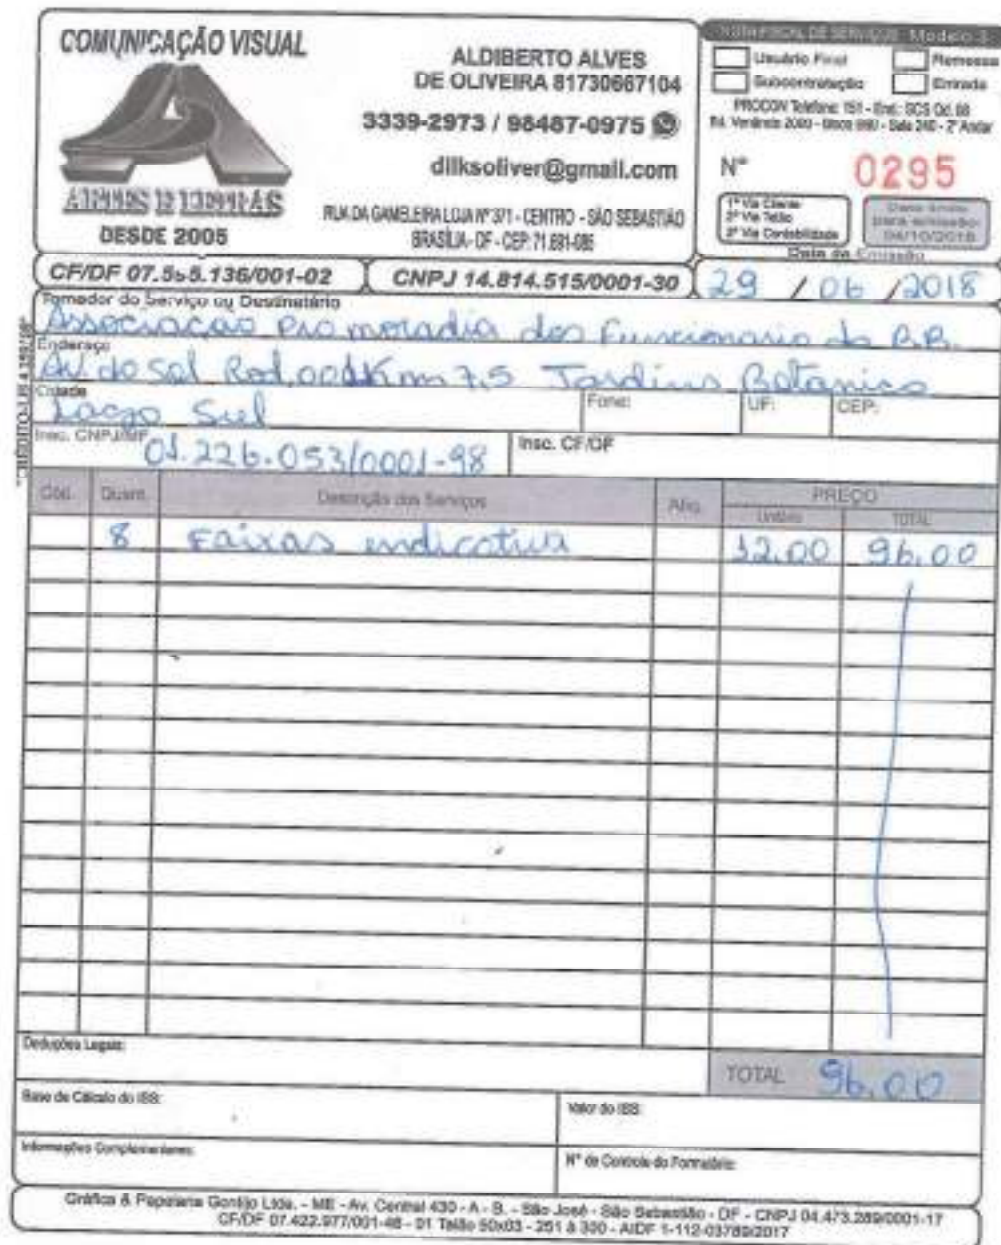 COMUNICAÇÃO VISUAL
ARTES E LETRAS
DESDE 2005
ALDIBERTO ALVES
DE OLIVEIRA 81730667104
3339-2973 / 98487-0975
dilksoliver@gmail.com
RUA DA GAMELEIRA LOJA Nº 371 - CENTRO - SÃO SEBASTIÃO
BRASÍLIA - DF - CEP: 71.691-085
NOTA FISCAL DE SERVIÇOS Modelo 3
Usuário Final Remessa
Subcontratação Entrada
PROCON Telefone: 151 - End.: SCS Qd. 08
Ed. Venâncio 2000 - Bloco B60 - Sala 240 - 2º Andar
Nº 0295
1ª Via Cliente
2ª Via Talão
3ª Via Contabilidade
Data limite
para emissão:
04/10/2018
Data da Emissão
CF/DF 07.555.136/001-02
CNPJ 14.814.515/0001-30
29 / 06 / 2018
Tomador do Serviço ou Destinatário
Associacao Pro moradia dos Funcionario do B.B.
Endereço
Av. do Sol Rod.001 Km 7,5 Jardins Botanico
Cidade
Lago Sul
Fone: UF: CEP:
Insc. CNPJ/MF
01.226.053/0001-98
Insc. CF/DF
Cód. Quant. Descrição dos Serviços Aliq. PREÇO
Unitário TOTAL
8 Faixas indicativa 12,00 96,00
Deduções Legais:
TOTAL 96,00
Base de Cálculo do ISS:
Valor do ISS:
Informações Complementares:
Nº de Controle do Formulário:
Gráfica & Papelaria Gontijo Ltda. - ME - Av. Central 430 - A - B. - São José - São Sebastião - DF - CNPJ 04.473.289/0001-17
CF/DF 07.422.977/001-48 - 01 Talão 50x03 - 251 à 300 - AIDF 1-112-03789/2017